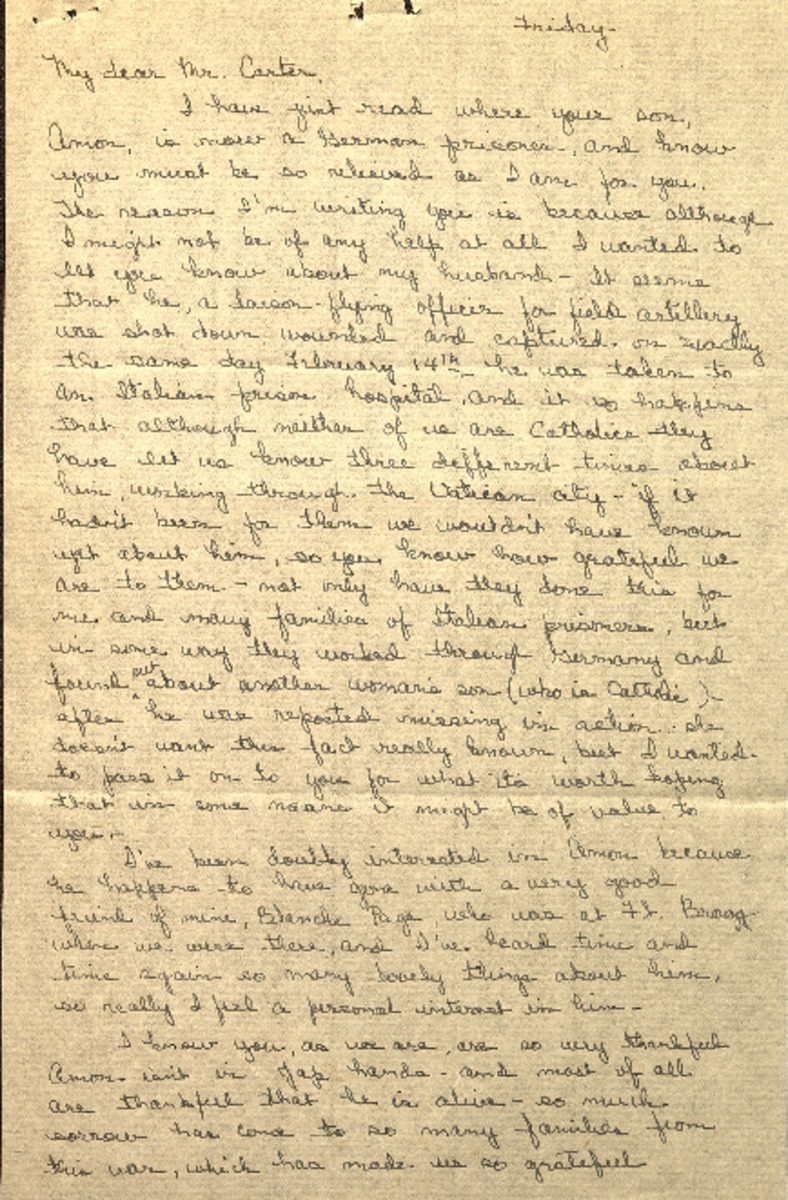 Friday-
My dear Mr. Carter,
I have just read where your son,
Amon, is now a German prisoner, and know
you must be so relieved as I am for you.
The reason I'm writing you is because although
I might not be of any help at all I wanted to
let you know about my husband - It seems
that he, a liason-flying officer for field artillery
was shot down wounded and captured on exactly
the same day February 14th - he was taken to
an Italian prison hospital, and it so happens
that although neither of us are Catholics they
have let us know three different times about
him, working through the Vatican city - if it
hadn't been for them we wouldn't have known
yet about him, so you know how grateful we
are to them - not only have they done this for
me and many families of Italian prisoners, but
in some way they worked through Germany and
found out about another woman's son (who is Catholic) -
after he was reported missing in action - she
doesn't want this fact really known, but I wanted
to pass it on to you for what its worth hoping
that in some means it might be of value to
you -
I've been doubly interested in Amon because
he happens to have gone with a very good
friend of mine, Blanche Page who was at Ft. Bragg
when we were there, and I've heard time and
time again so many lovely things about him,
so really I feel a personal interest in him -
I know you, as we are, are so very thankful
Amon isn't in Jap hands - and most of all
are thankful that he is alive - so much
sorrow has come to so many families from
this war, which has made us so grateful